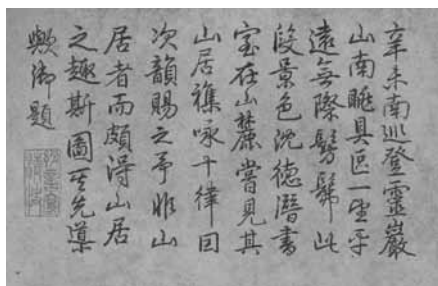 辛未南巡登靈巖
山南眺具區一望平
遠無際髣髴此
段景色沈德潛書
室在山麓嘗見其
山居雜咏十律因
次韻賜之予非山
居者而頗得山居
之趣斯圖其先導
歟御題